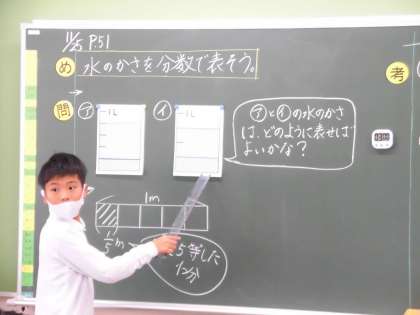 11/25 P.51
め 水のかさを分数で表そう。
→
問 ア
1L
イ
1L
アとイの水のかさ
は、どのように表せば
よいかな?
考
1m
1/5 m
5等した
1こ分